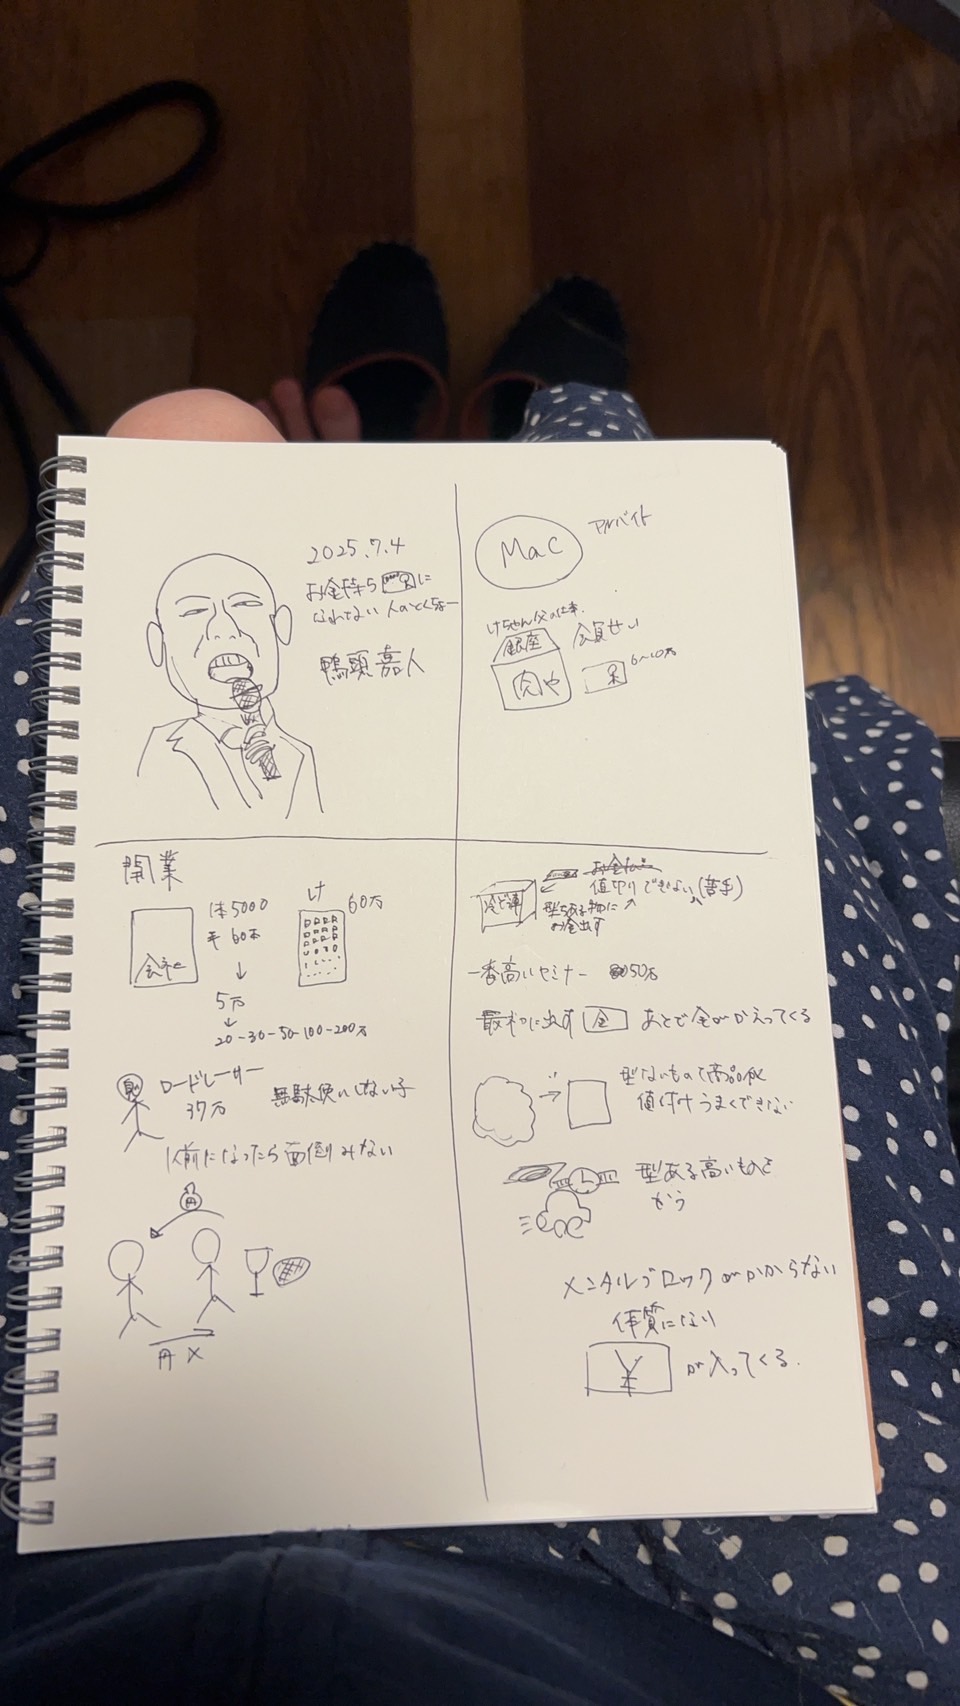 2025.7.4
お金持ち に
なれてない人のとくちょー
鴨頭嘉人
Mac
アルバイト
父の仕事.
銀座
会員せい
肉や
6〜10万
開業
1本5000
60本
会社
↓
5万
↓
20-30-50-100-200万
け
60万
ロードレーサー
37万
無駄使いしない子
1人前になったら面倒みない
円
円 ×
値切りできない(苦手)
型ある物に
お金出す
一番高いセミナー
50万
最初に出す 金 あとで金がかえってくる
→
型ないもので商品化
値付けうまくできない
型ある高いものを
かう
メンタルブロックがかからない
体質になり
¥ が入ってくる.